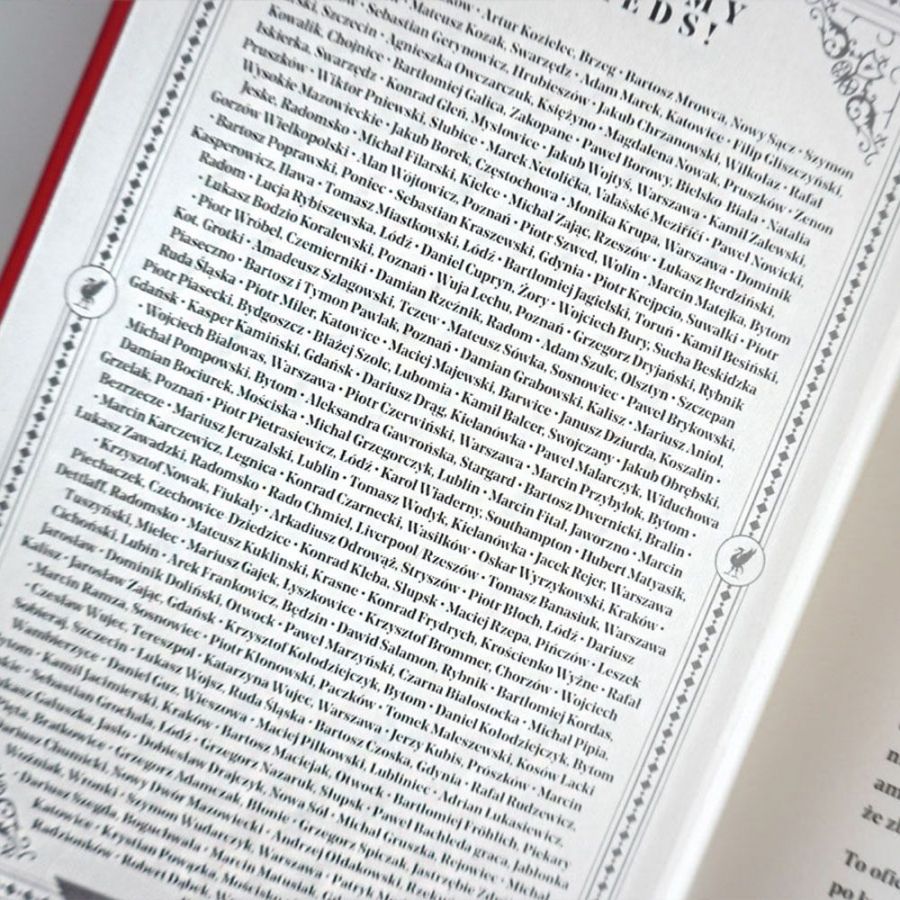 MY
EDS!
Artur Kozielec, Brzeg · Bartosz Mrowca, Nowy Sącz · Szymon
Mateusz Kozak, Swarzędz · Adam Marek, Katowice · Filip Gliszczyński,
Szczecin · Sebastian Gerynowicz, Hrubieszów · Jakub Chrzanowski, Wilkołaz · Rafał
Kowalik, Chojnice · Agnieszka Owczarczuk, Księżyno · Magdalena Nowak, Pruszków · Zenon
Iskierka, Swarzędz · Bartłomiej Galica, Zakopane · Paweł Borowy, Bielsko-Biała · Natalia
Pruszków · Konrad Gleń, Mysłowice · Jakub Wojtyś, Warszawa · Kamil Zalewski,
Wysokie Mazowieckie · Wiktor Pniewski, Słubice · Marek Netolička, Valašské Meziříčí · Paweł Nowicki,
Jeske, Radomsko · Jakub Borek, Częstochowa · Monika Krupa, Warszawa · Dominik
Gorzów Wielkopolski · Michał Filarski, Kielce · Michał Zając, Rzeszów · Łukasz Berdziński,
· Bartosz Poprawski, Poniec · Alan Wójtowicz, Poznań · Piotr Szwed, Wolin · Marcin Matejka, Bytom
Kasperowicz, Iława · Tomasz Miastkowski, Łódź · Sebastian Kraszewski, Gdynia · Piotr Krejpcio, Suwałki · Piotr
Radom · Lucja Rybiszewska, Łódź · Daniel Cupryn, Żory · Bartłomiej Jagielski, Toruń · Kamil Besiński,
· Łukasz Bodzio Koralewski, Poznań · Wuja Lechu, Poznań · Wojciech Bury, Sucha Beskidzka
· Piotr Wróbel, Czemierniki · Damian Rzeźnik, Radom · Grzegorz Dryjański, Rybnik
Kot, Grotki · Amadeusz Szlagowski, Tczew · Mateusz Sówka, Sosnowiec · Adam Szulc, Olsztyn · Szczepan
Piaseczno · Bartosz i Tymon Pawlak, Poznań · Damian Grabowski, Kalisz · Paweł Brykowski,
Ruda Śląska · Piotr Miler, Katowice · Maciej Majewski, Barwice · Janusz Dziurda, Koszalin ·
Piotr Piasecki, Bydgoszcz · Błażej Szolc, Lubomia · Kamil Balcer, Swojczany · Jakub Obrębski,
Gdańsk · Kasper Kamiński, Gdańsk · Dariusz Drąg, Kielanówka · Paweł Malarczyk, Widuchowa
· Wojciech Białowas, Warszawa · Piotr Czerwiński, Warszawa · Marcin Przybyłok, Bytom ·
Michał Pompowski, Bytom · Aleksandra Gawrońska, Stargard · Bartosz Dwernicki, Bralin ·
Damian Bociurek, Mościska · Michał Grzegorczyk, Lublin · Marcin Fital, Jaworzno · Marcin
Grzelak, Poznań · Piotr Pietrasiewicz, Łódź · Karol Wiaderny, Southampton · Hubert Matyasik,
Bezrzecze · Mariusz Jeruzalski, Lublin · Tomasz Wodyk, Kielanówka · Jacek Rejer, Warszawa
· Marcin Karczewicz, Legnica · Konrad Czarnecki, Wasilków · Oskar Wyrzykowski, Kraków ·
Łukasz Zawadzki, Radomsko · Rado Chmiel, Liverpool, Rzeszów · Tomasz Banasiuk, Warszawa
· Krzysztof Nowak, Fiukały · Arkadiusz Odrowąż, Stryszów · Piotr Błoch, Łódź · Dariusz
Piechaczek, Czechowice Dziedzice · Konrad Kleba, Słupsk · Maciej Rzepa, Pińczów · Leszek
Dettlaff, Radomsko · Mateusz Kukliński, Krasne · Konrad Frydrych, Krościenko Wyżne · Rafał
Tuszyński, Mielec · Mariusz Gajek, Łyszkowice · Krzysztof Brommer, Chorzów · Wojciech
Cichoński, Lubin · Arek Frankowicz, Będzin · Dawid Salamon, Rybnik · Bartłomiej Kordas,
Jarosław · Dominik Doliński, Otwock · Paweł Marzyński, Czarna Białostocka · Michał Pipia,
Kalisz · Jarosław Zając, Gdańsk · Krzysztof Kołodziejczyk, Bytom · Daniel Kołodziejczyk, Bytom
· Marcin Ramza, Sosnowiec · Piotr Klonowski, Paczków · Tomek Małeszewski, Kosów Lacki
· Czesław Wujec, Terespol · Katarzyna Wujec, Warszawa · Jerzy Kubis, Prószków · Marcin
Sobieraj, Szczecin · Łukasz Wojsz, Ruda Śląska · Bartosz Czoska, Gdynia · Rafał Rudzewicz,
Wambierzyce · Daniel Guz, Wieszowa · Maciej Piłkowski, Lubliniec · Adrian Łukasiewicz,
· Kamil Jacimierski, Kraków · Bartosz Mociejak, Otwock · Bartłomiej Fröhlich, Piekary
· Sebastian Grochala, Łódź · Grzegorz Nazaruk, Słupsk · Paweł Bachleda graca, Jabłonka
Gałuszka, Jasło · Dobiesław Drajczyk, Nowa Sól · Michał Gruszka, Rejowiec · Michał
Bratkowice · Grzegorz Adamczak, Błonie · Grzegorz Spiczak, Jastrzębie
Chumicki, Nowy Dwór Mazowiecki · Andrzej Ołdakowski,
Woźniak, Wronki · Szymon Włudarczyk, Warszawa · Patryk
· Dariusz Szegda, Boguchwała · Marcin Matusiak,
Katowice · Krystian Powązka, Mościsko
Radzionków · Robert Dąbek,
że
To ofic
po